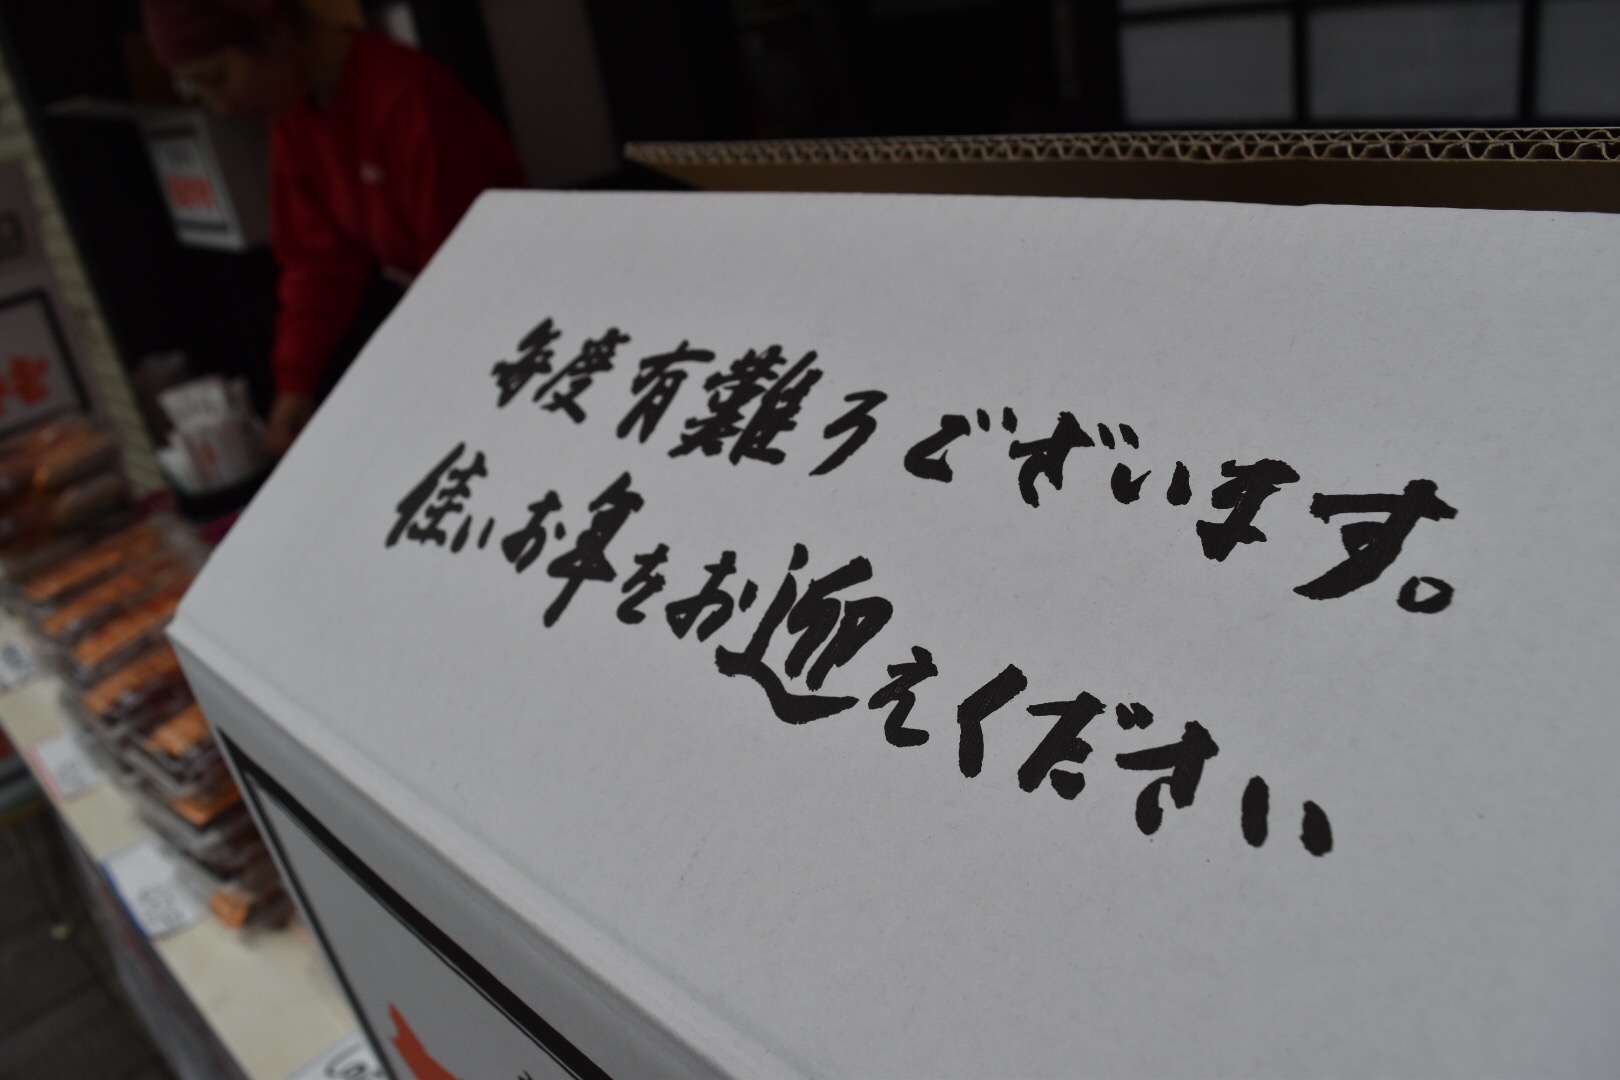 毎度有難うございます。
佳いお年をお迎えください